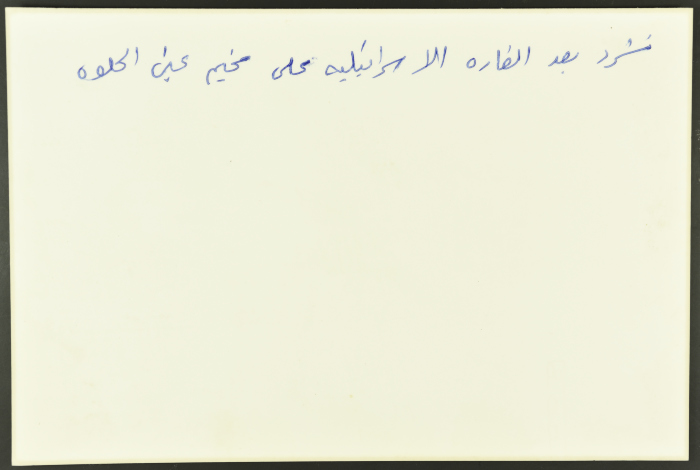 تشرد بعد الغاره الاسرائيليه على مخيم عين الحلوه